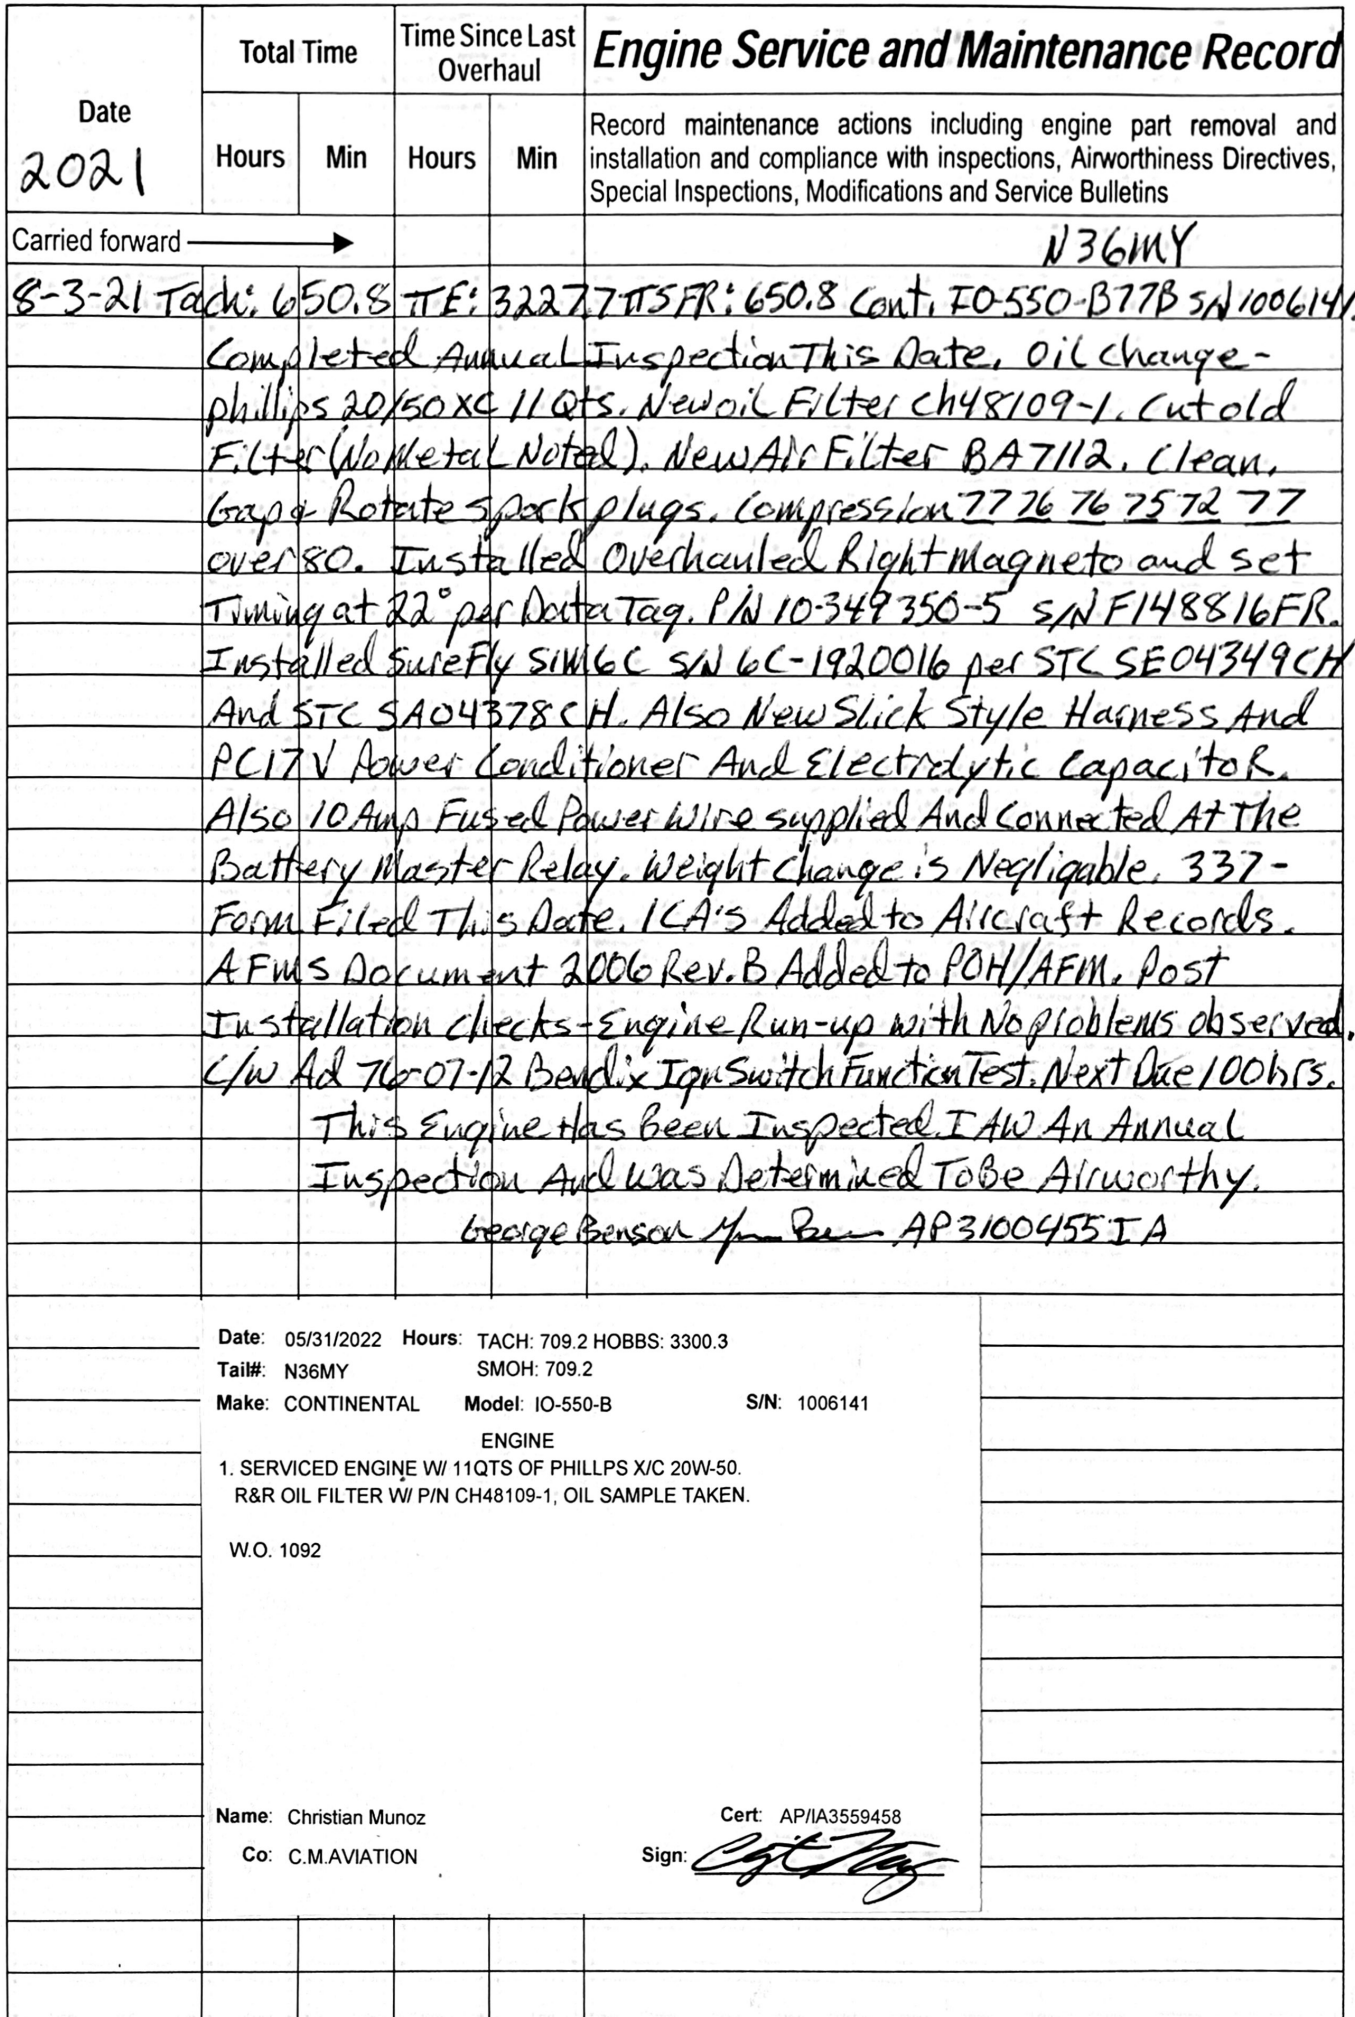 Date
2021
Total Time
Time Since Last Overhaul
Hours
Min
Hours
Min
Engine Service and Maintenance Record
Record maintenance actions including engine part removal and
installation and compliance with inspections, Airworthiness Directives,
Special Inspections, Modifications and Service Bulletins
Carried forward
N36MY
8-3-21 Tach: 650.8 TTE: 3227.7 TTSFR: 650.8 Cont. IO-550-B77B S/N 1006141.
Completed Annual Inspection This Date. Oil Change -
phillips 20/50 XC 11 Qts. New oil Filter CH48109-1. Cut old
Filter (No Metal Noted). New Air Filter BA7112. Clean,
Gap & Rotate spark plugs. Compression 77 76 76 75 72 77
over 80. Installed Overhauled Right Magneto and set
Timing at 22° per Data Tag. P/N 10-349350-5 S/N F148816FR.
Installed SureFly SIM6C S/N 6C-1920016 per STC SE04349CH
And STC SA04378CH. Also New Slick Style Harness And
PC17V Power Conditioner And Electrolytic Capacitor.
Also 10 Amp Fused Power Wire supplied And Connected At The
Battery Master Relay. Weight Change is Negligable. 337-
Form Filed This Date. ICA's Added to Aircraft Records.
AFMS Document 2006 Rev. B Added to POH/AFM. Post
Installation checks - Engine Run-up with No problems observed.
C/W Ad 76-07-12 Bendix Ign Switch Function Test. Next Due 100 hrs.
This Engine Has Been Inspected IAW An Annual
Inspection And was Determined To Be Airworthy.
George Benson AP3100455IA
Date: 05/31/2022 Hours: TACH: 709.2 HOBBS: 3300.3
Tail#: N36MY SMOH: 709.2
Make: CONTINENTAL Model: IO-550-B S/N: 1006141
ENGINE
1. SERVICED ENGINE W/ 11QTS OF PHILLPS X/C 20W-50.
R&R OIL FILTER W/ P/N CH48109-1, OIL SAMPLE TAKEN.
W.O. 1092
Name: Christian Munoz Cert: AP/IA3559458
Co: C.M.AVIATION Sign: